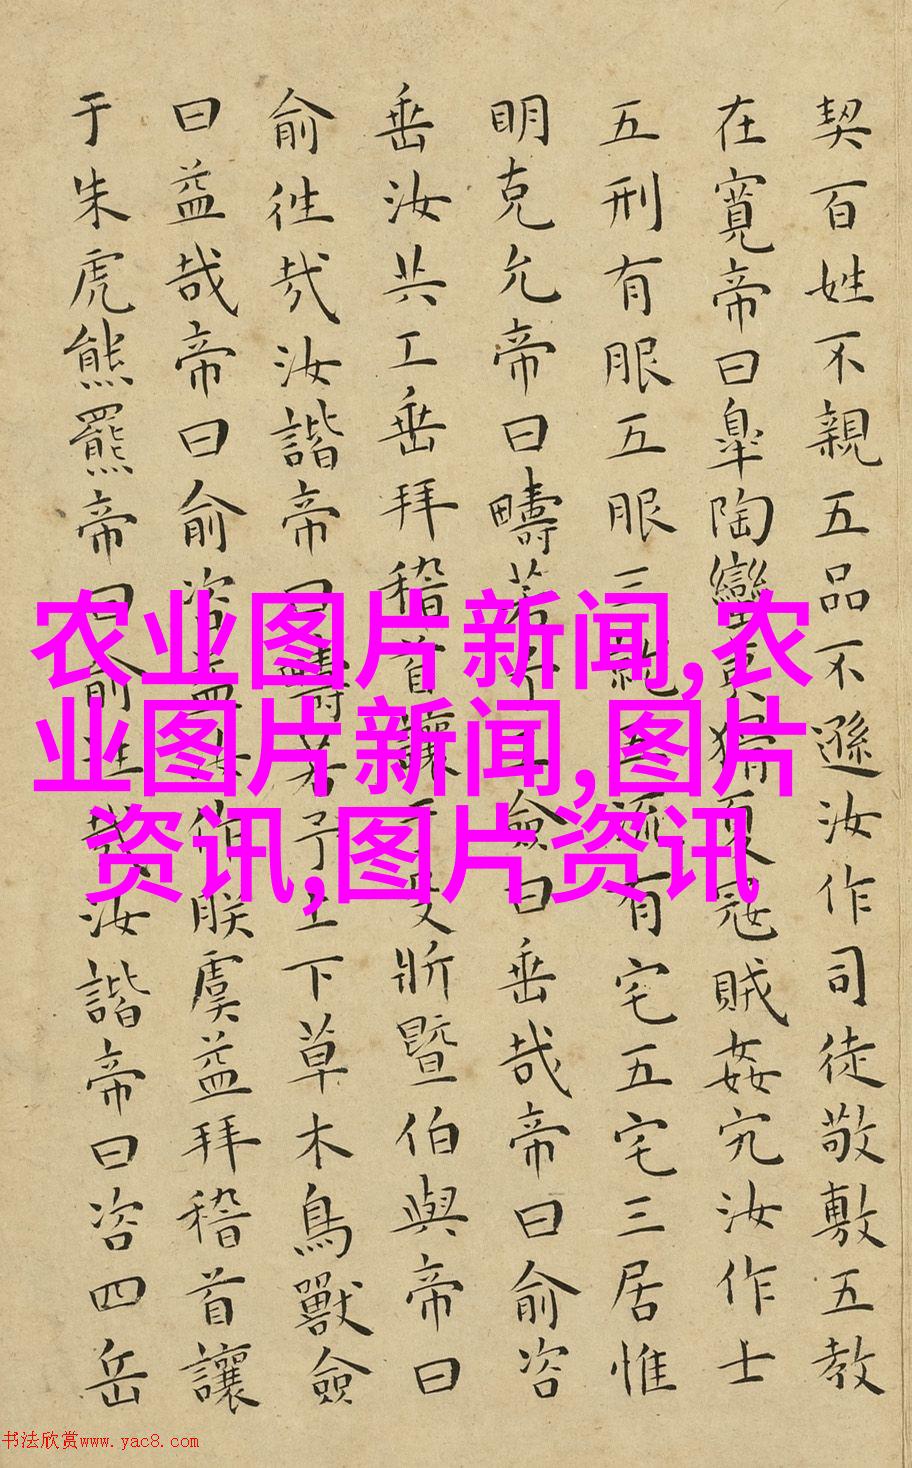 契百姓不親五品不遜汝作司徒敬敷五教
在寬帝曰皐陶蠻夷猾夏寇賊姦宄汝作士
五刑有服五服三就五流有宅五宅三居惟
明克允帝曰疇若予工僉曰垂哉帝曰俞咨
垂汝共工垂拜稽首讓于殳斨暨伯與帝曰
俞往哉汝諧帝曰疇若予上下草木鳥獸僉
曰益哉帝曰俞咨益汝作朕虞益拜稽首讓
于朱虎熊羆帝曰俞往哉汝諧帝曰咨四岳
农业图片新闻,农
业图片新闻,图片
资讯,图片资讯
书法欣赏www.yac8.com